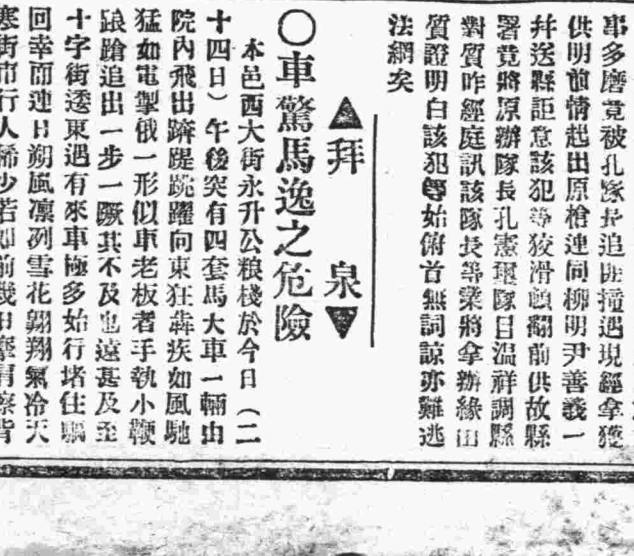 事多磨竟被孔隊長追匪撞遇現經拿獲
供明前情起出原槍連同柳明尹善義一
幷送縣詎意該犯等狡滑賴翻前供故縣
署竟將原辦隊長孔憲 隊目溫祥調縣
對質昨經庭訊該隊長等業將拿辦緣由
質證明白該犯等始俯首無詞諒亦難逃
法網矣
▲拜泉▼
○車驚馬逸之危險
本邑西大街永升公粮棧於今日（二
十四日）午後突有四套馬大車一輛由
院內飛出 蹄跳躍向東狂犇疾如風馳
猛如電掣俄一形似車老板者手執小鞭
踉蹌追出一步一蹶其不及也遠甚及至
十字街迤東遇有來車極多始行堵住
回幸而連日朔風凛冽雪花翺翔氣冷天
寒街市行人稀少若如前幾日